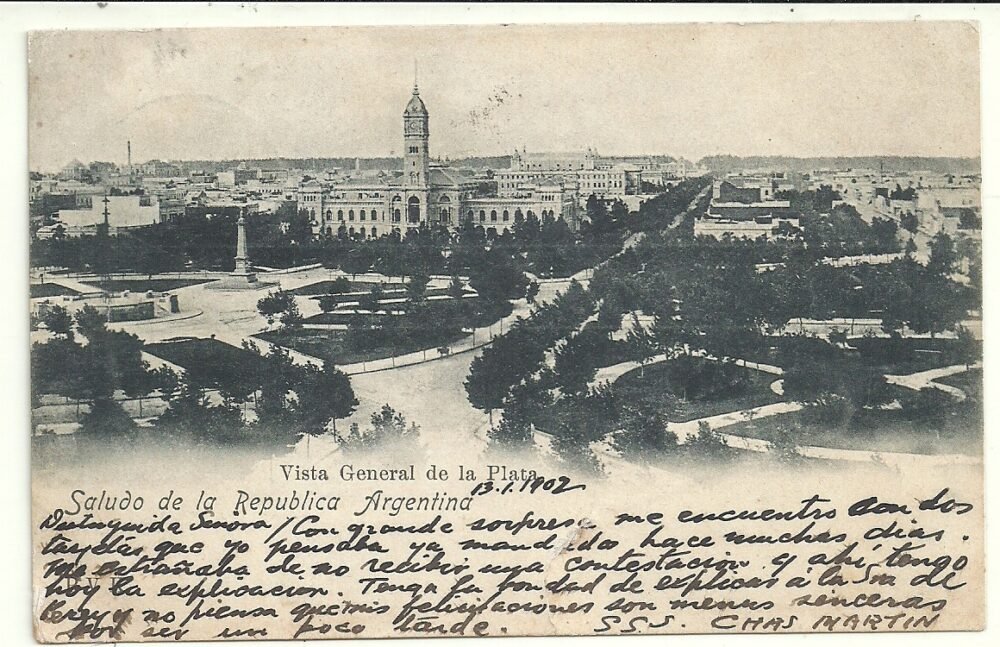 Vista General de la Plata
Saludo de la Republica Argentina 13.1.1902
Distinguida Senora / Con grande sorpresa me encuentro con dos
tarjetas que yo pensaba ya mandadas hace muchas dias.
Me extrañaba de no recibir una contestacion y ahí tengo
hoy la explicacion. Tenga la bondad de explicar á la Sra de
y no piensa que mis felicitaciones son menus sinceras
por ser un poco tarde. S.S.S. CHAS MARTIN